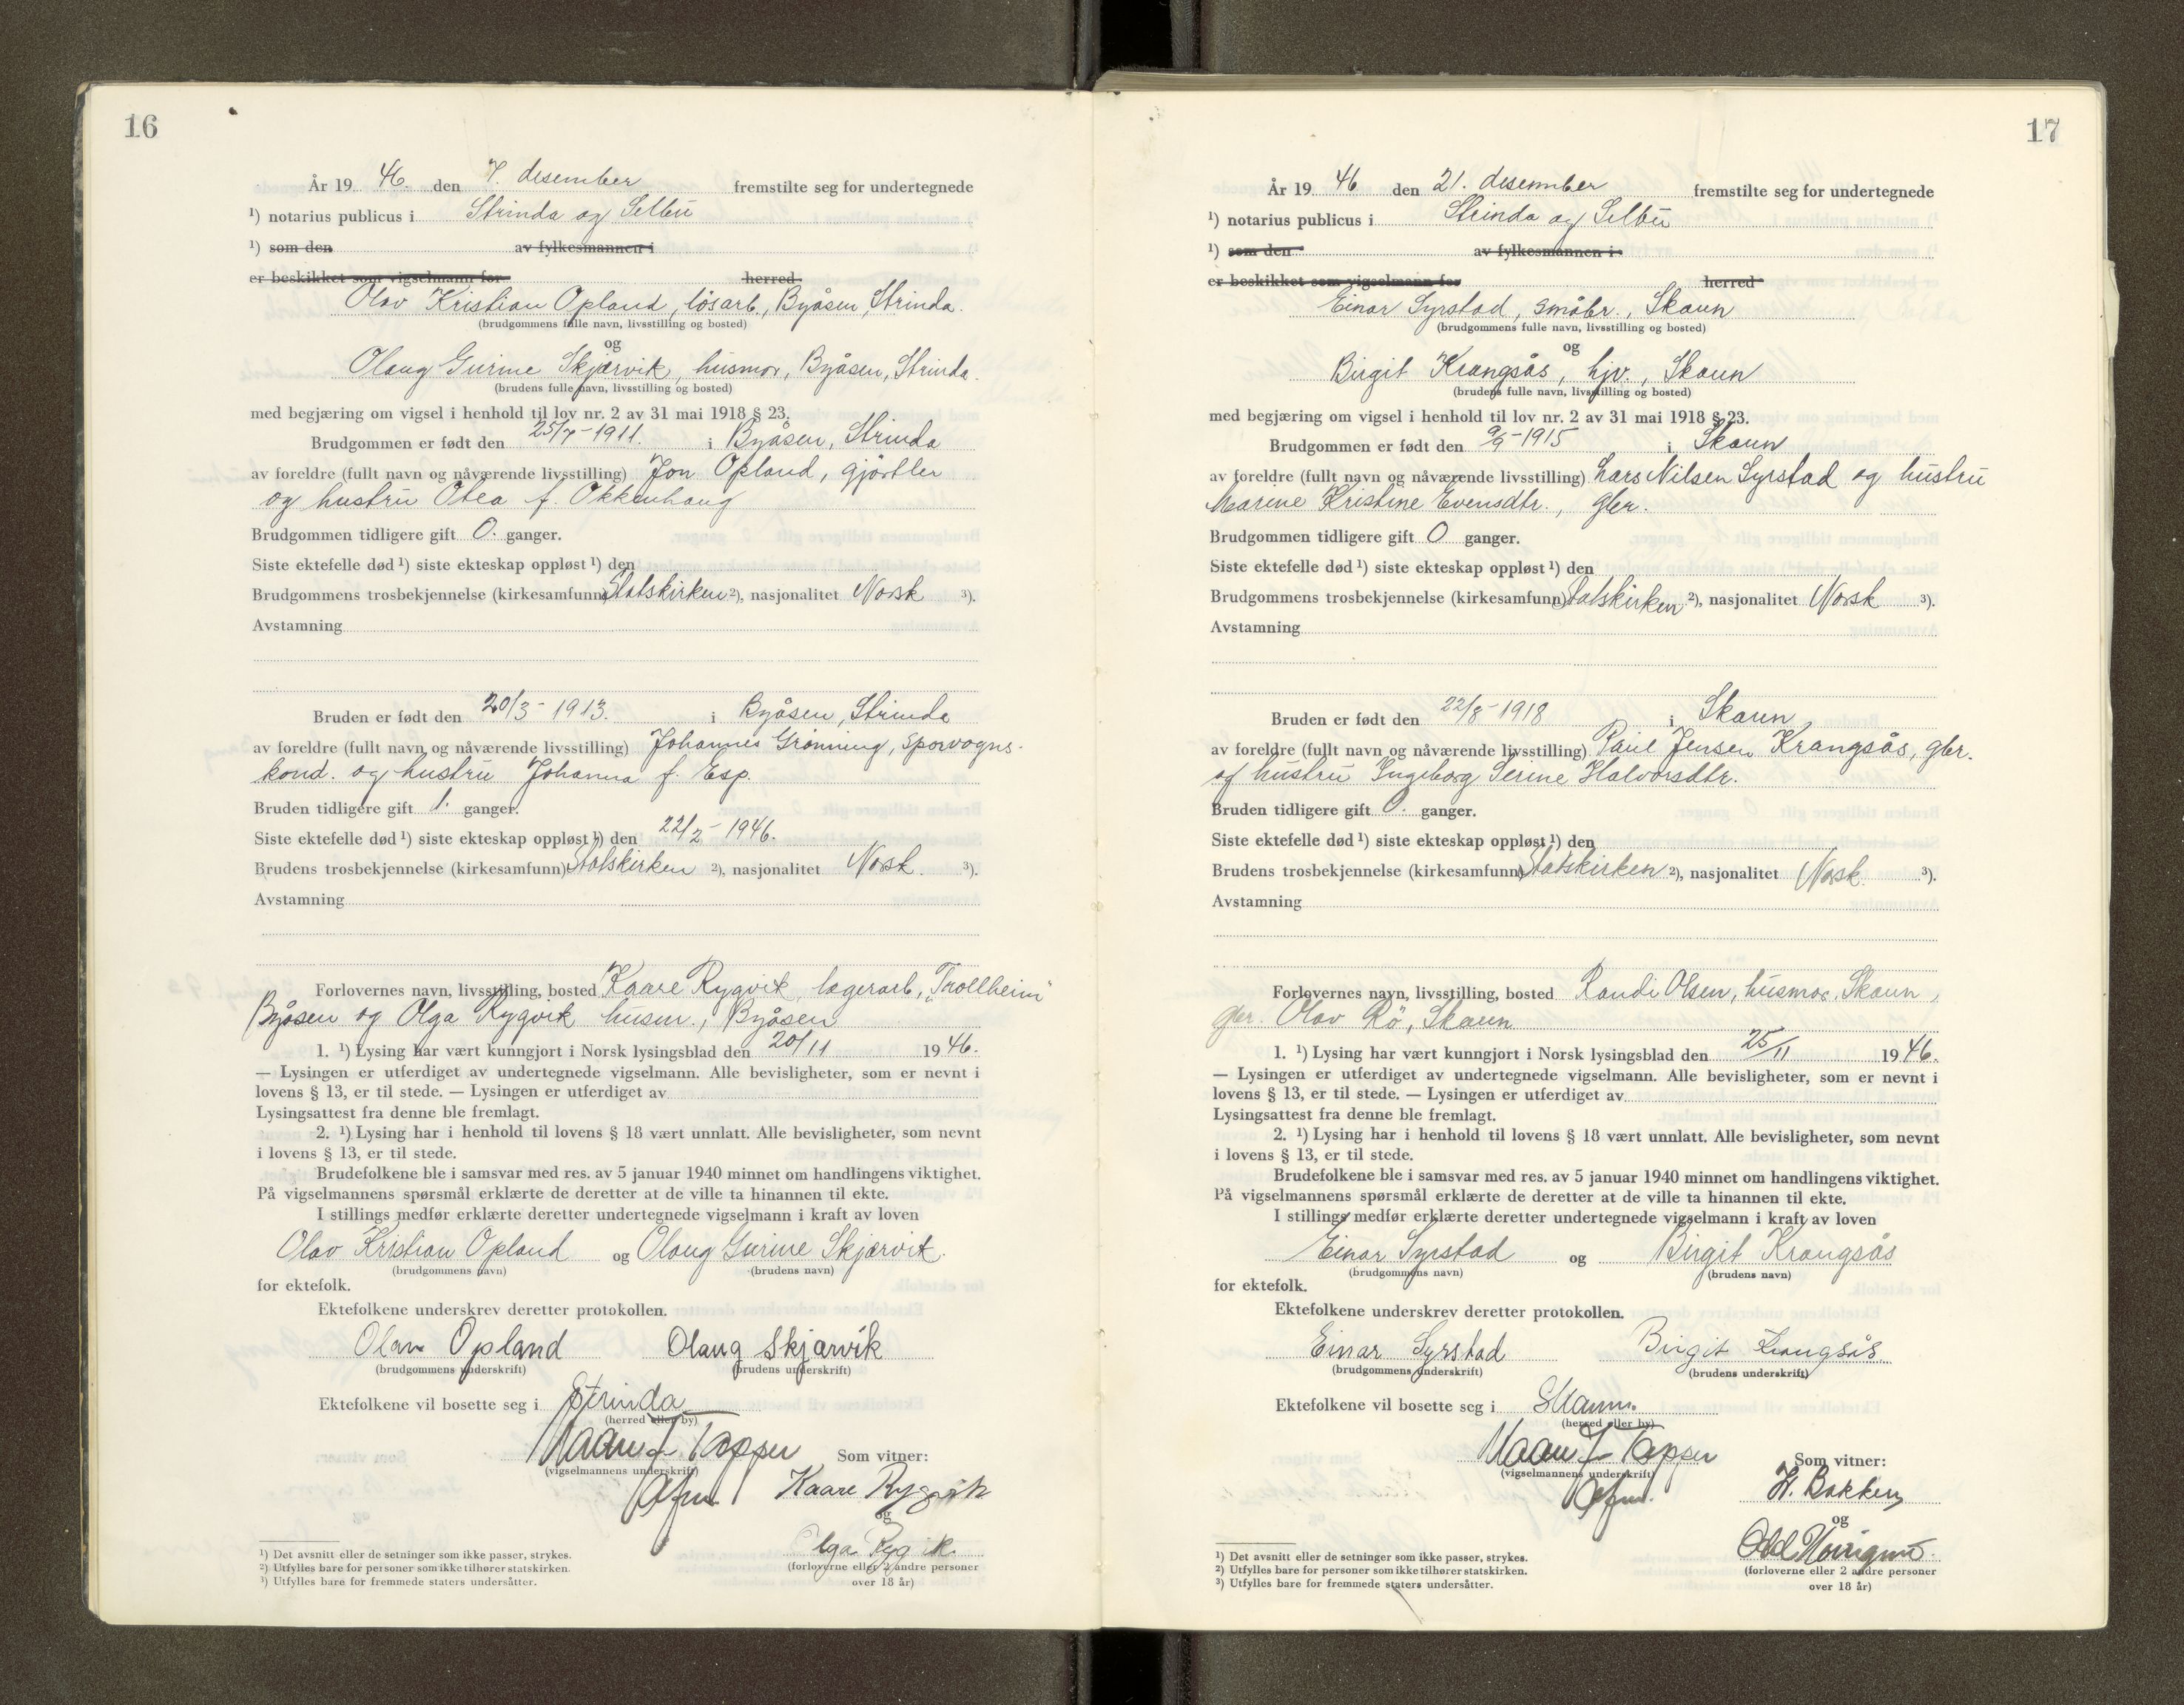 16
År 19 46. den 7. desember fremstilte seg for undertegnede
¹) notarius publicus i Strinda og Selbu
¹) som den av fylkesmannen i
er beskikket som vigselmann for herred.
Olav Kristian Opland, lösarb., Byåsen, Strinda.
(brudgommens fulle navn, livsstilling og bosted)
og
Olaug Gurine Skjærvik, husmor, Byåsen, Strinda.
(brudens fulle navn, livsstilling og bosted)
med begjæring om vigsel i henhold til lov nr. 2 av 31 mai 1918 § 23.
Brudgommen er født den 25/7-1911. i Byåsen, Strinda
av foreldre (fullt navn og nåværende livsstilling) Jon Opland, gjörtler
og hustru Otea f. Okkenhaug
Brudgommen tidligere gift 0. ganger.
Siste ektefelle død ¹) siste ekteskap oppløst ¹) den
Brudgommens trosbekjennelse (kirkesamfunn) Statskirken ²), nasjonalitet Norsk ³).
Avstamning
Bruden er født den 20/3-1913. i Byåsen, Strinda
av foreldre (fullt navn og nåværende livsstilling) Johannes Grönning, sporvogns-
kond. og hustru Johanna f. Esp.
Bruden tidligere gift 1. ganger.
Siste ektefelle død ¹) siste ekteskap oppløst ¹) den 22/2-1946.
Brudens trosbekjennelse (kirkesamfunn) Statskirken ²), nasjonalitet Norsk. ³).
Avstamning
Forlovernes navn, livsstilling, bosted Kaare Rygvik, lagerarb, „Trollheim"
Byåsen og Olga Rygvik husm., Byåsen
1. ¹) Lysing har vært kunngjort i Norsk lysingsblad den 20/11 19 46.
— Lysingen er utferdiget av undertegnede vigselmann. Alle bevisligheter, som er nevnt i
lovens § 13, er til stede. — Lysingen er utferdiget av
Lysingsattest fra denne ble fremlagt.
2. ¹) Lysing har i henhold til lovens § 18 vært unnlatt. Alle bevisligheter, som nevnt
i lovens § 13, er til stede.
Brudefolkene ble i samsvar med res. av 5 januar 1940 minnet om handlingens viktighet.
På vigselmannens spørsmål erklærte de deretter at de ville ta hinannen til ekte.
I stillings medfør erklærte deretter undertegnede vigselmann i kraft av loven
Olav Kristian Opland og Olaug Gurine Skjærvik.
(brudgommens navn) (brudens navn)
for ektefolk.
Ektefolkene underskrev deretter protokollen.
Olav Opland Olaug Skjærvik
(brudgommens underskrift) (brudens underskrift)
Ektefolkene vil bosette seg i Strinda
(herred eller by)
Som vitner:
(vigselmannens underskrift)
Kaare Rygvik
og
Olga Rygvik.
(forloverne eller 2 andre personer
over 18 år)
¹) Det avsnitt eller de setninger som ikke passer, strykes.
²) Utfylles bare for personer som ikke tilhører statskirken.
³) Utfylles bare for fremmede staters undersåtter.
17
År 19 46 den 21. desember fremstilte seg for undertegnede
¹) notarius publicus i Strinda og Selbu
¹) som den av fylkesmannen i
er beskikket som vigselmann for herred
Einar Syrstad, småbr., Skaun
(brudgommens fulle navn, livsstilling og bosted)
og
Birgit Krangsås, hjv., Skaun
(brudens fulle navn, livsstilling og bosted)
med begjæring om vigsel i henhold til lov nr. 2 av 31 mai 1918 § 23.
Brudgommen er født den 9/9-1915 i Skaun
av foreldre (fullt navn og nåværende livsstilling) Lars Nilsen Syrstad og hustru
Marine Kristine Evensdtr., gbr.
Brudgommen tidligere gift 0 ganger.
Siste ektefelle død ¹) siste ekteskap oppløst ¹) den
Brudgommens trosbekjennelse (kirkesamfunn) Statskirken ²), nasjonalitet Norsk ³).
Avstamning
Bruden er født den 22/8-1918 i Skaun
av foreldre (fullt navn og nåværende livsstilling) Paul Jensen Krangsås, gbr.
og hustru Ingeborg Serine Halvorsdtr.
Bruden tidligere gift 0. ganger.
Siste ektefelle død ¹) siste ekteskap oppløst ¹) den
Brudens trosbekjennelse (kirkesamfunn) Statskirken ²), nasjonalitet Norsk. ³).
Avstamning
Forlovernes navn, livsstilling, bosted Randi Olsen, husmor, Skaun,
gbr. Olav Rö, Skaun
1. ¹) Lysing har vært kunngjort i Norsk lysingsblad den 25/11 19 46.
— Lysingen er utferdiget av undertegnede vigselmann. Alle bevisligheter, som er nevnt i
lovens § 13, er til stede. — Lysingen er utferdiget av
Lysingsattest fra denne ble fremlagt.
2. ¹) Lysing har i henhold til lovens § 18 vært unnlatt. Alle bevisligheter, som nevnt
i lovens § 13, er til stede.
Brudefolkene ble i samsvar med res. av 5 januar 1940 minnet om handlingens viktighet.
På vigselmannens spørsmål erklærte de deretter at de ville ta hinannen til ekte.
I stillings medfør erklærte deretter undertegnede vigselmann i kraft av loven
Einar Syrstad og Birgit Krangsås
(brudgommens navn) (brudens navn)
for ektefolk.
Ektefolkene underskrev deretter protokollen.
Einar Syrstad Birgit Krangsås
(brudgommens underskrift) (brudens underskrift)
Ektefolkene vil bosette seg i Skaun.
(herred eller by)
Som vitner:
(vigselmannens underskrift)
H. Bakken
og
Odd
(forloverne eller 2 andre personer
over 18 år)
¹) Det avsnitt eller de setninger som ikke passer, strykes.
²) Utfylles bare for personer som ikke tilhører statskirken.
³) Utfylles bare for fremmede staters undersåtter.